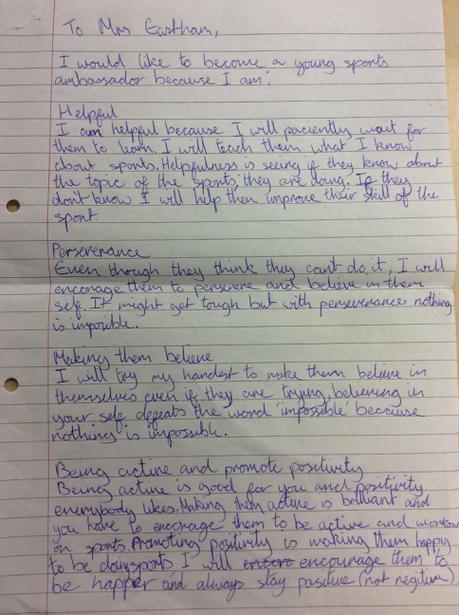 To Mrs Eastham,
I would like to become a young sports
ambassador because I am:
Helpful
I am helpful because I will paciently wait for
them to learn. I will teach them what I know
about sports. Helpfulness is seeing if they know about
the topic of the sports they are doing. If they
don't know I will help them improve their skill of the
sport.
Perseverance
Even though they think they can't do it, I will
encorage them to persevere and believe in them
self. It might get tough but with perseverance nothing
is imposible.
Making them believe
I will try my hardest to make them believe in
themselves even if they are trying, believing in
your self defeats the word 'impossible' because
nothing is impossible.
Being active and promote positivity
Being active is good for you and positivity
everybody likes. Making them active is brilliant and
you have to encorage them to be active and
on sports. Promoting positivity is making them happy
to be doing sports I will encourage them to
be happer and always stay positive (not negitive).